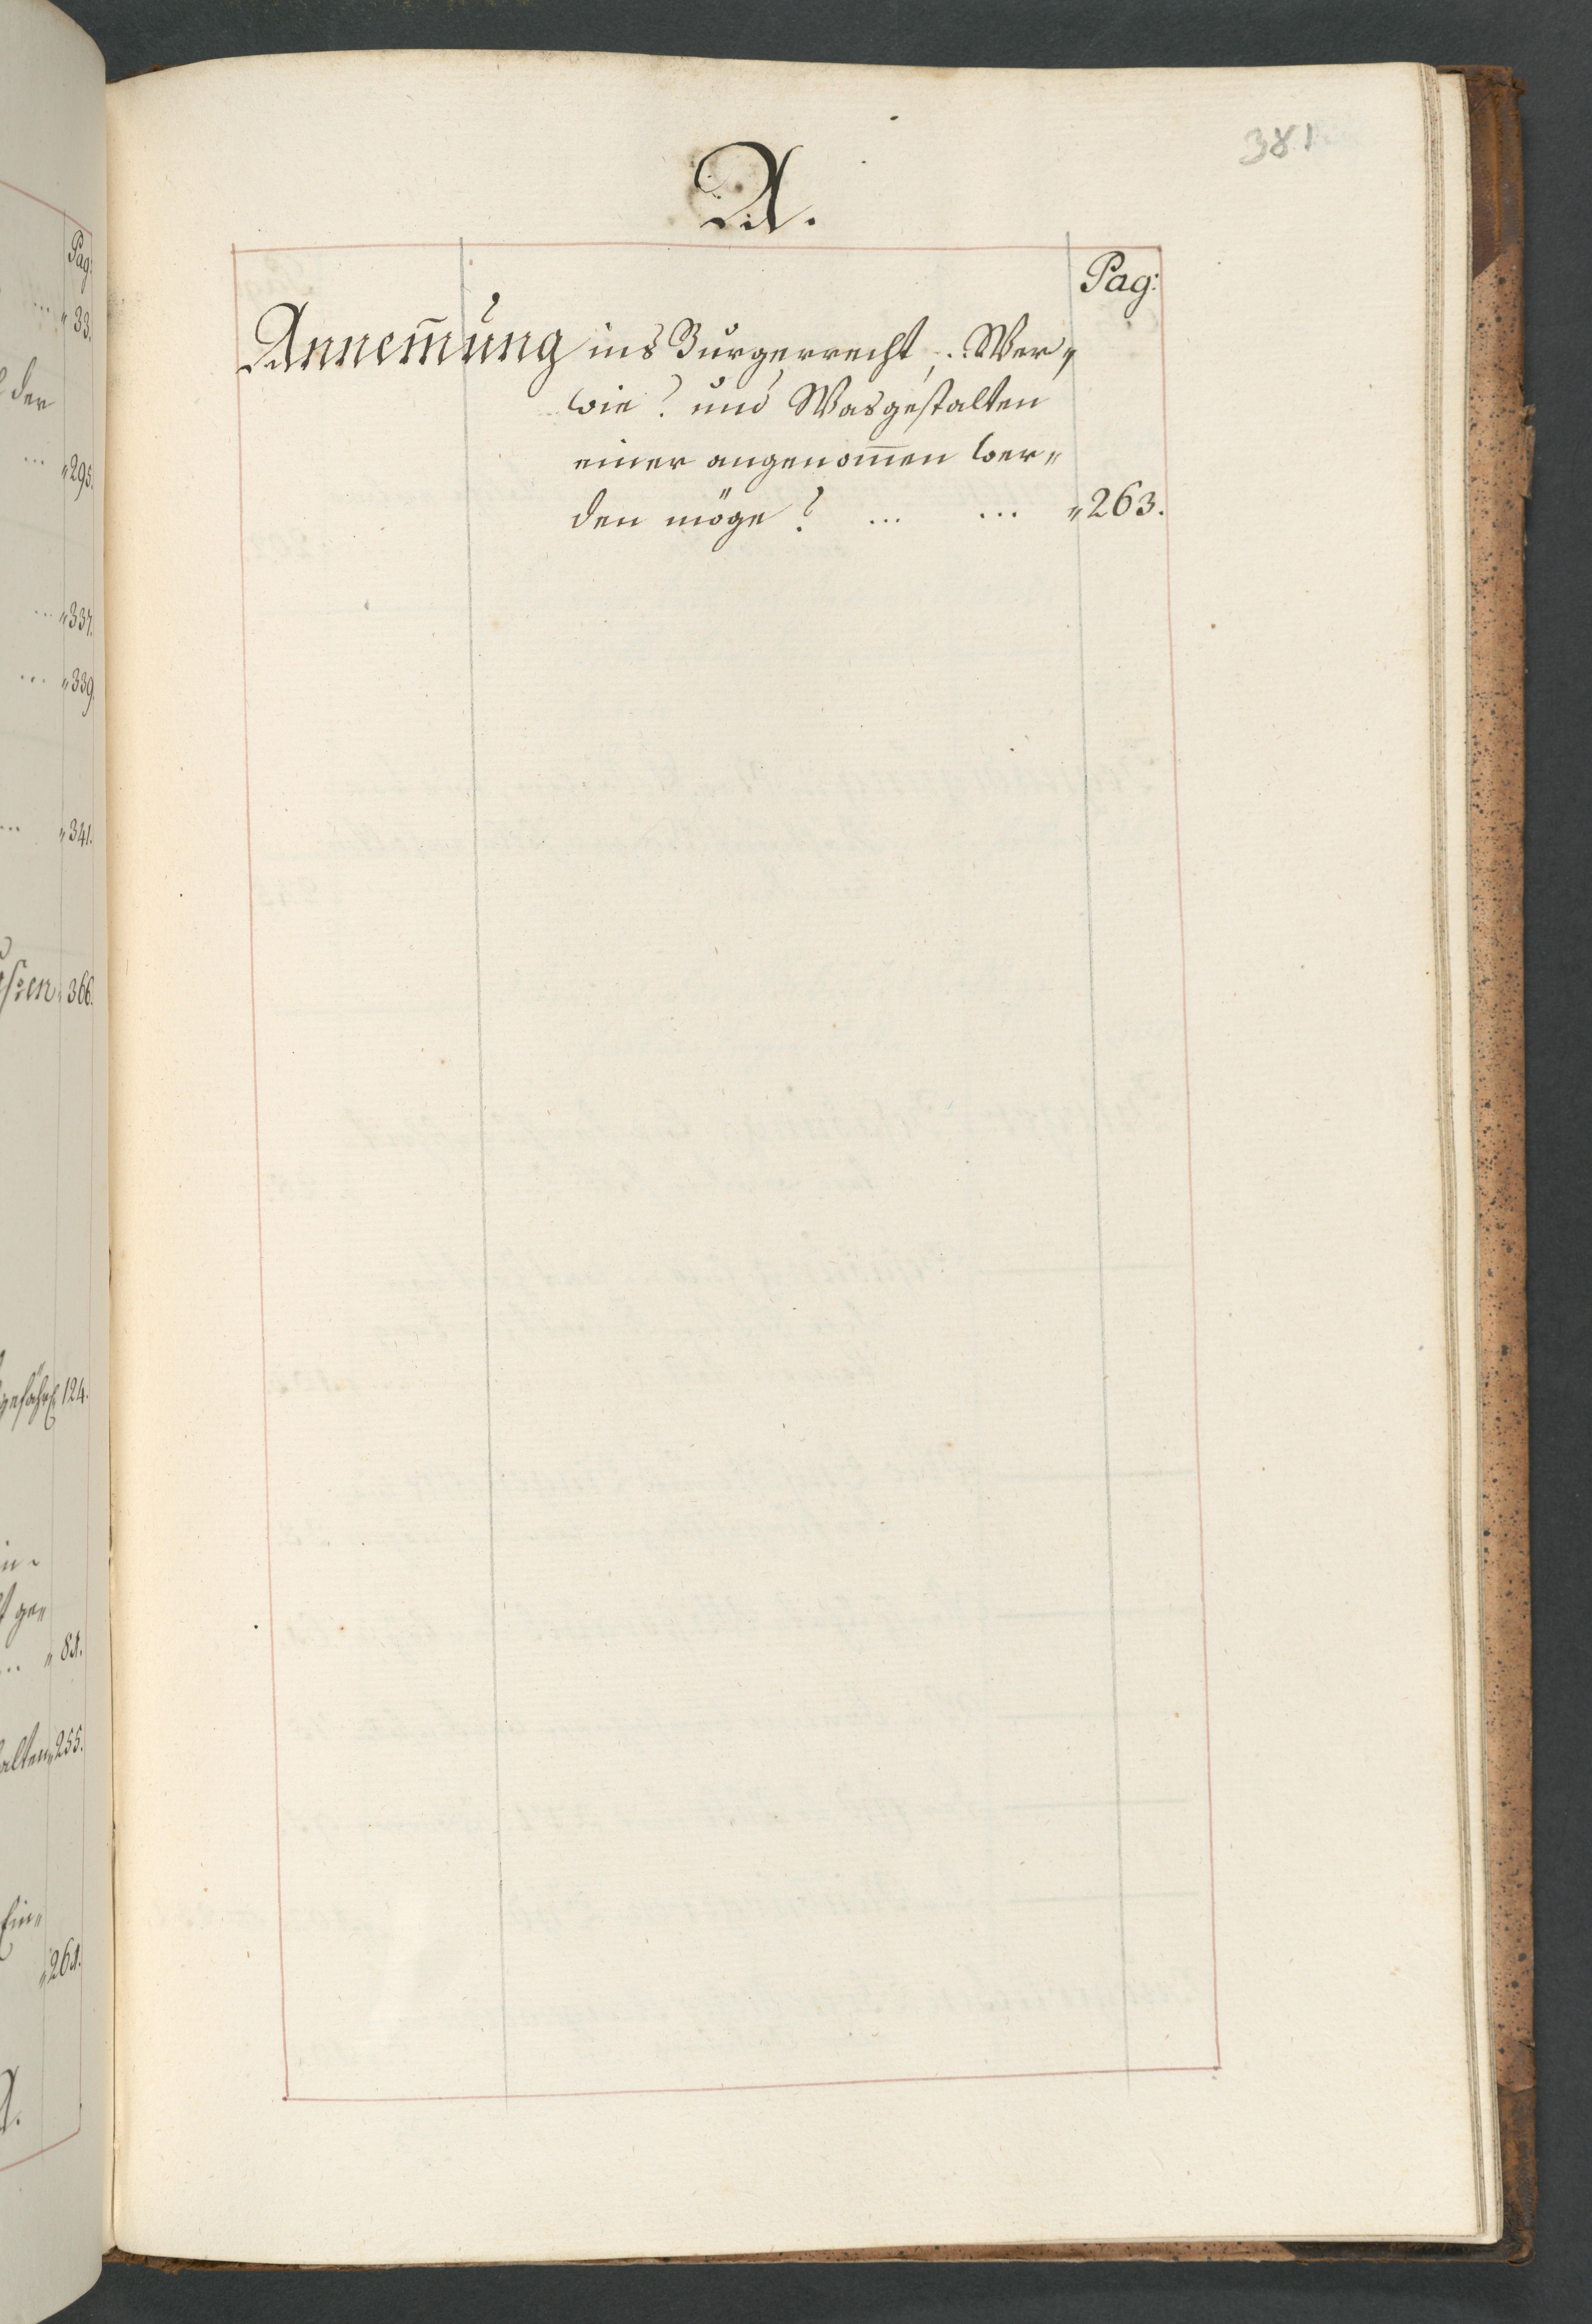 381
A.
Pag:
Annem̅ung ins Burgerrecht, .. Wer,
wie? und Wasgestalten
einer angenom̅en wer„
den möge? ... ... „263.
Pag:
... „33.
der
... „295.
... „337.
... „339.
... „341.
„366.
124.
in-
ge„
... „81.
alten„255.
Ein„
„261.
A.